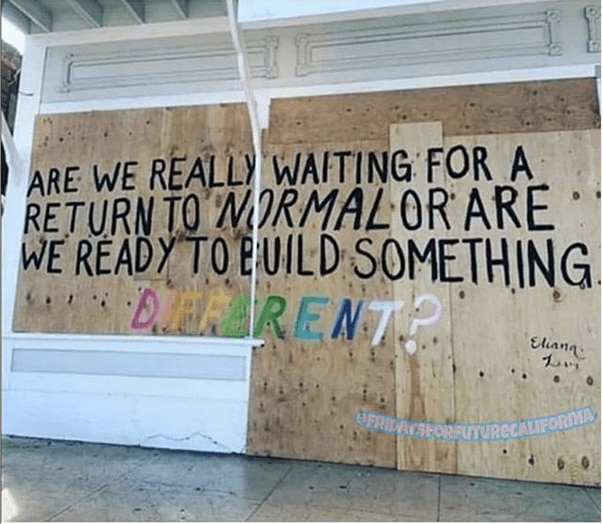 ARE WE REALLY WAITING FOR A
RETURN TO NORMAL OR ARE
WE READY TO BUILD SOMETHING
DIFFERENT?
Eliana
@FRIDAYSFORFUTURECALIFORNIA